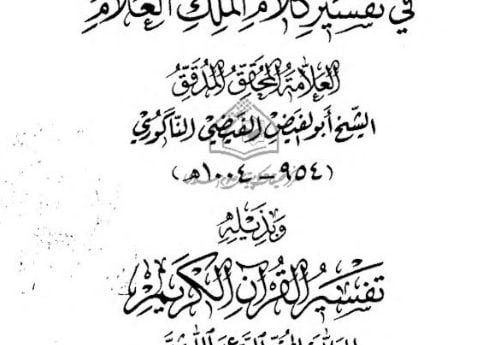 في تفسير كلام الملك العلام
العلامة المحقق المدقق
الشيخ أبو الفيض الفيضي الناكوري
(٩٥٤ - ١٠٠٤ هـ)
وبذيله
تفسير القرآن الكريم